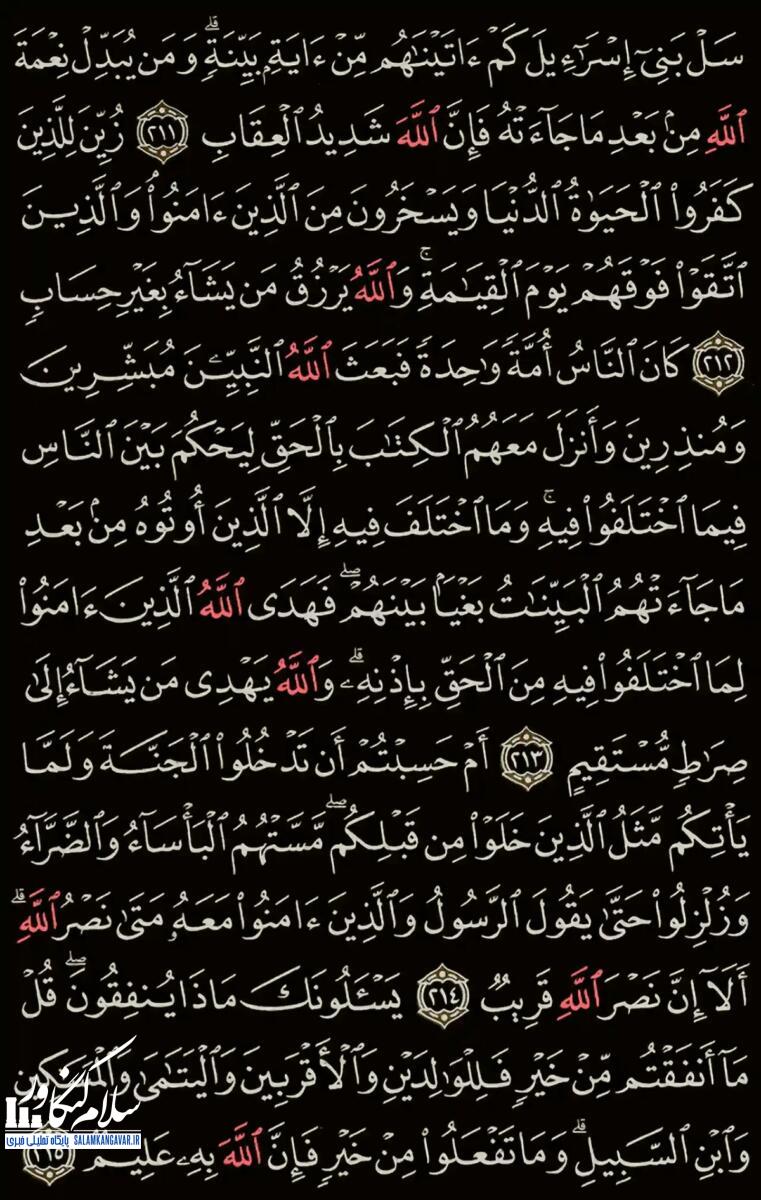 سَلْ بَنِىٓ إِسْرَٰٓءِيلَ كَمْ ءَاتَيْنَٰهُم مِّنْ ءَايَةٍۭ بَيِّنَةٍۗ وَمَن يُبَدِّلْ نِعْمَةَ
ٱللَّهِ مِنۢ بَعْدِ مَا جَآءَتْهُ فَإِنَّ ٱللَّهَ شَدِيدُ ٱلْعِقَابِ ٢١١ زُيِّنَ لِلَّذِينَ
كَفَرُوا۟ ٱلْحَيَوٰةُ ٱلدُّنْيَا وَيَسْخَرُونَ مِنَ ٱلَّذِينَ ءَامَنُوا۟ۘ وَٱلَّذِينَ
ٱتَّقَوْا۟ فَوْقَهُمْ يَوْمَ ٱلْقِيَٰمَةِۚ وَٱللَّهُ يَرْزُقُ مَن يَشَآءُ بِغَيْرِ حِسَابٍ
٢١٢ كَانَ ٱلنَّاسُ أُمَّةً وَٰحِدَةً فَبَعَثَ ٱللَّهُ ٱلنَّبِيِّـۧنَ مُبَشِّرِينَ
وَمُنذِرِينَ وَأَنزَلَ مَعَهُمُ ٱلْكِتَٰبَ بِٱلْحَقِّ لِيَحْكُمَ بَيْنَ ٱلنَّاسِ
فِيمَا ٱخْتَلَفُوا۟ فِيهِۚ وَمَا ٱخْتَلَفَ فِيهِ إِلَّا ٱلَّذِينَ أُوتُوهُ مِنۢ بَعْدِ
مَا جَآءَتْهُمُ ٱلْبَيِّنَٰتُ بَغْيًۢا بَيْنَهُمْۖ فَهَدَى ٱللَّهُ ٱلَّذِينَ ءَامَنُوا۟
لِمَا ٱخْتَلَفُوا۟ فِيهِ مِنَ ٱلْحَقِّ بِإِذْنِهِۦۗ وَٱللَّهُ يَهْدِى مَن يَشَآءُ إِلَىٰ
صِرَٰطٍ مُّسْتَقِيمٍ ٢١٣ أَمْ حَسِبْتُمْ أَن تَدْخُلُوا۟ ٱلْجَنَّةَ وَلَمَّا
يَأْتِكُم مَّثَلُ ٱلَّذِينَ خَلَوْا۟ مِن قَبْلِكُمۖ مَّسَّتْهُمُ ٱلْبَأْسَآءُ وَٱلضَّرَّآءُ
وَزُلْزِلُوا۟ حَتَّىٰ يَقُولَ ٱلرَّسُولُ وَٱلَّذِينَ ءَامَنُوا۟ مَعَهُۥ مَتَىٰ نَصْرُ ٱللَّهِۗ
أَلَآ إِنَّ نَصْرَ ٱللَّهِ قَرِيبٌ ٢١٤ يَسْـَٔلُونَكَ مَاذَا يُنفِقُونَۖ قُلْ
مَآ أَنفَقْتُم مِّنْ خَيْرٍ فَلِلْوَٰلِدَيْنِ وَٱلْأَقْرَبِينَ وَٱلْيَتَٰمَىٰ وَٱلْمَسَٰكِينِ
وَٱبْنِ ٱلسَّبِيلِۗ وَمَا تَفْعَلُوا۟ مِنْ خَيْرٍ فَإِنَّ ٱللَّهَ بِهِۦ عَلِيمٌ ٢١٥
سلام کنگاور
پایگاه تحلیلی خبری SALAMKANGAVAR.IR